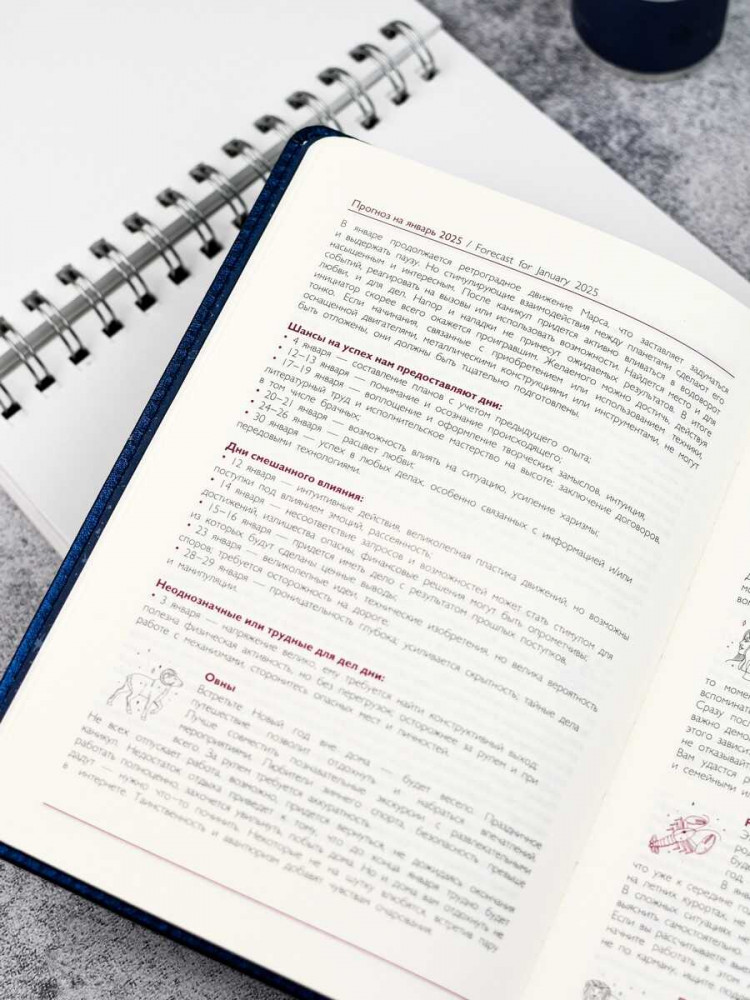 Прогноз на январь 2025 / Forecast for January 2025
В январе продолжается ретроградное движение Марса, что заставляет задуматься
и выдержать паузу. Но стимулирующие взаимодействия между планетами сделают его
насыщенным и интересным. После каникул придется активно вливаться в водоворот
событий, реагировать на вызовы или использовать возможности. Найдется место и для
любви, и для дел. Напор и нападки не принесут ожидаемых результатов. В итоге
инициатор скорее всего окажется проигравшим. Желаемого можно достичь, действуя
тонко. Если начинания, связанные с приобретением или использованием техники,
оснащенной двигателями, металлическими конструкциями или инструментами, не могут
быть отложены, они должны быть тщательно подготовлены.
Шансы на успех нам предоставляют дни:
• 4 января — составление планов с учетом предыдущего опыта;
• 12–13 января — понимание и осознание происходящего;
• 17–19 января — воплощение и оформление творческих замыслов, интуиция,
литературный труд и исполнительское мастерство на высоте; заключение договоров,
в том числе брачных;
• 20–21 января — возможность влиять на ситуацию, усиление харизмы;
• 24–26 января — расцвет любви;
• 30 января — успех в любых делах, особенно связанных с информацией и/или
передовыми технологиями.
Дни смешанного влияния:
• 12 января — интуитивные действия, великолепная пластика движений, но возможны
поступки под влиянием эмоций, рассеянность;
• 14 января — несоответствие запросов и возможностей может стать стимулом для
достижений, излишества опасны, финансовые решения могут быть опрометчивы;
• 15–16 января — придется иметь дело с результатом прошлых поступков,
из которых будут сделаны ценные выводы;
• 23 января — великолепные идеи, технические изобретения, но велика вероятность
споров; требуется осторожность на дороге;
• 28–29 января — проницательность глубока; усиливается скрытность; тайные дела
и манипуляции.
Неоднозначные или трудные для дел дни:
• 3 января — напряжение велико, ему требуется найти конструктивный выход;
полезна физическая активность, но без перегрузок; осторожнее за рулем и при
работе с механизмами, сторонитесь опасных мест и личностей.
Овны
Встретьте Новый год вне дома — будет весело. Праздничное
путешествие позволит отдохнуть и набраться впечатлений.
Лучше совместить познавательные экскурсии с развлекательными
мероприятиями. Любители зимнего спорта, безопасность превыше
всего. За рулем требуется аккуратность.
Не всех отпускает работа, возможно, придется вернуться, не дожидаясь окончания
каникул. Недостаток отдыха приведет к тому, что до конца января трудно будет
работать полноценно, захочется увильнуть, побыть дома. Но и дома вам отдохнуть не
дадут — нужно что-то починить. Некоторые не на шутку влюбятся, встретив пару
в интернете. Таинственность и авантюризм добавят чувствам очарования.
то момен
вспоминат
Сразу пос
важно демо
этого завис
не отказывай
Вам удастся р
и семейными и
что уже к середине
на летних курортах, н
В сложных ситуациях
выяснить самостоятельно.
Если вы рассчитываете
начните работать в этом
не по карману, ищите